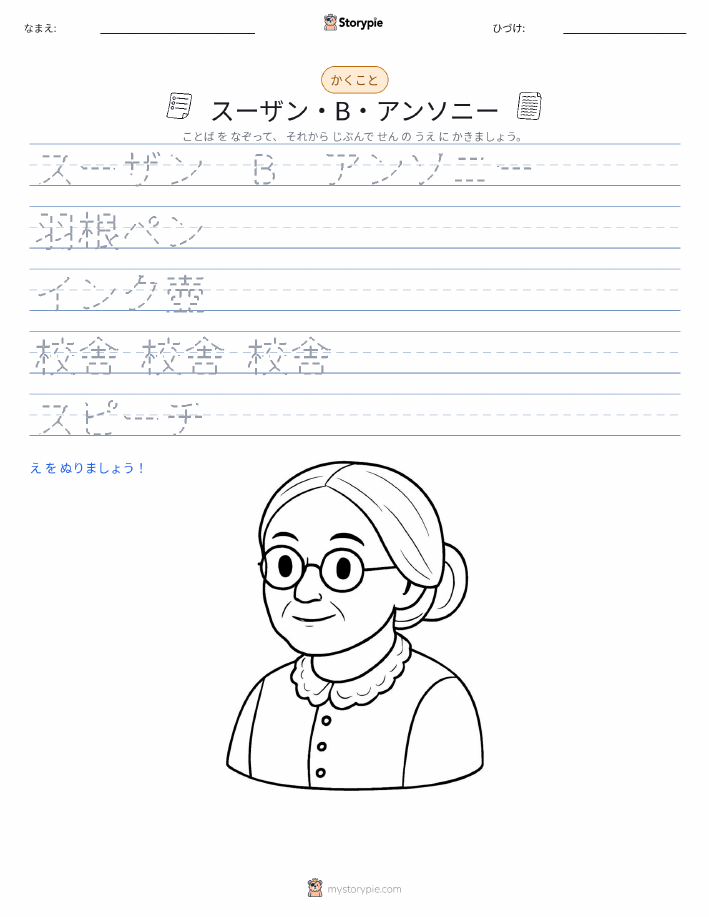 なまえ:
Storypie
ひづけ:
かくこと
スーザン・B・アンソニー
ことば を なぞって、 それから じぶんで せん の うえ に かきましょう。
スーザン B アンソニー
羽根ペン
インク壺
校舎 校舎 校舎
スピーチ
え を ぬりましょう！
mystorypie.com